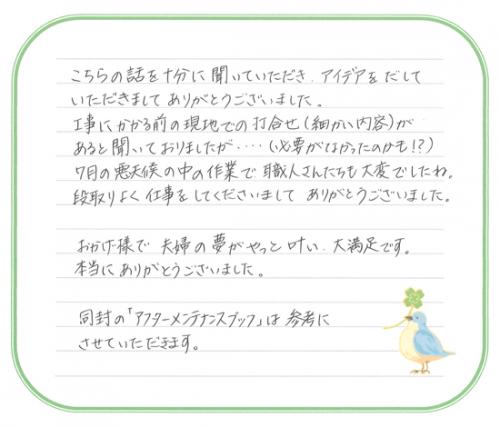 こちらの話を十分に聞いていただき、アイデアをだして
いただきまして ありがとうございました。
工事にかかる前の現地での打合せ(細かい内容)が
あると聞いておりましたが・・・・(必要がなかったのかも!?)
7月の悪天候の中の作業で、職人さんたちも大変でしたね。
段取りよく仕事をしてくださいまして ありがとうございました。
おかげ様で 夫婦の夢がやっと叶い、大満足です。
本当にありがとうございました。
同封の「アフターメンテナンスブック」は参考に
させていただきます。